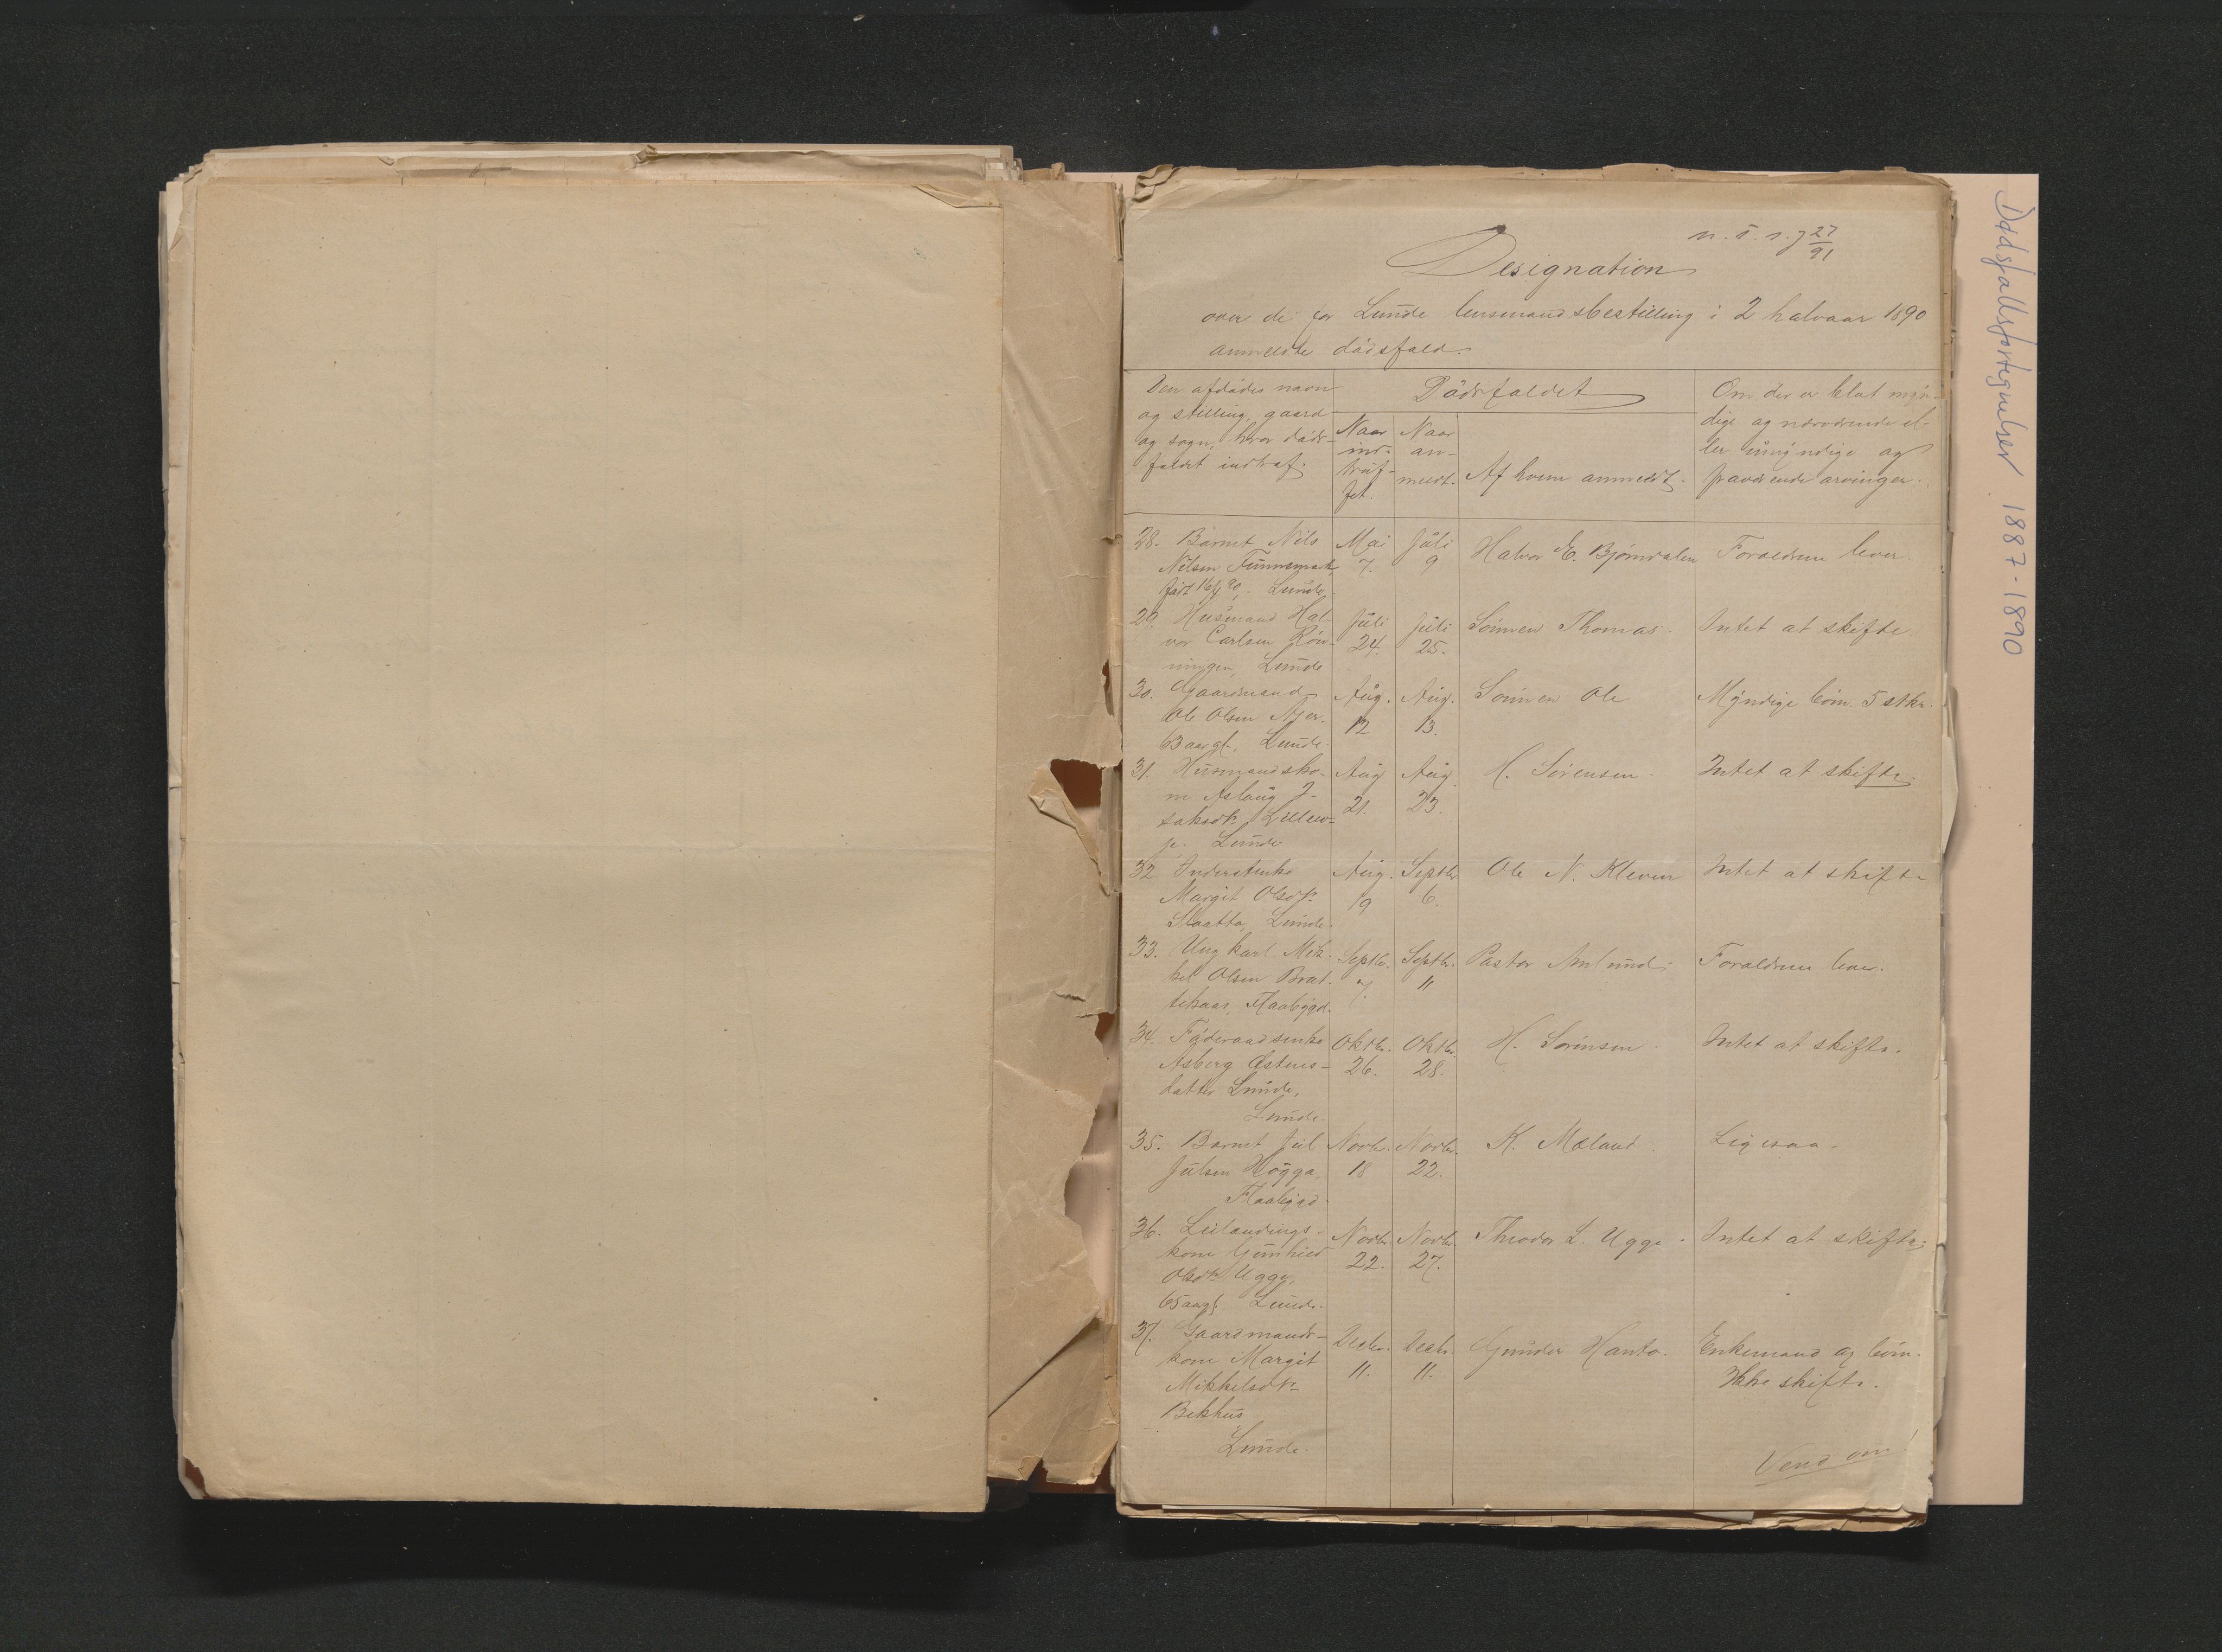 27
91
Designation
over de for Lunde lensmandsbestilling i 2 halvaar 1890
anmeldte dödsfald.
Den afdödes navn
og stilling, gaard
og sogn, hvor döds-
faldet indtraf.
Dödsfaldet
Naar
ind-
truf-
fet.
Naar
an-
meldt.
Af hvem anmeldt.
Om der er blot myn-
dige og nærværende el-
ler umyndige og
fraværende arvinger.
28. Barnet Nils
Nilsen Funnemark,
födt 16/4 90, Lunde.
Mai
7.
Juli
9
Halvor E. Björndalen
Foraeldrene lever.
29. Husmand Hal-
vor Carlsen Rön-
ningen, Lunde
Juli
24.
Juli
25.
Sönnen Thomas.
Intet at skifte
30. Gaardmand
Ole Olsen
Lunde.
Aug.
12
Aug.
13.
Sönnen Ole
Myndige börn 5 stkr.
31. Husmandsko-
ne Aslaug I-
saksdr.
Lunde
Aug
21.
Aug
23.
H. Sörensen.
Intet at skifte.
32. Inderstenke
Margit Olsdr.
Slaatta, Lunde.
Aug.
19
Septbr
6.
Ole N. Kleven
Intet at skifte
33. Ungkarl Mik-
kel Olsen Brat-
tekaas, Flaabygd.
Septbr.
7.
Septbr.
11
Pastor Amlund.
Foraeldrene lever.
34. Föderaadsenke
Asberg Östens-
datter Lunde,
Lunde
Oktbr.
26.
Oktbr.
28.
H. Sörensen.
Intet at skifte.
35. Barnet Jul
Julsen Hogga,
Flaabygd.
Novbr.
18
Novbr.
22.
K. Mæland.
Ligesaa.
36. Leilændings-
kone Gunhild
Olsdr. Ugge,
65 aar gl. Lunde.
Novbr.
22.
Novbr.
27.
Theodor L. Ugge.
Intet at skifte.
37. Gaardmands-
kone Margit
Mikkelsdr.
Bekhus
Lunde.
Decbr.
11.
Decbr.
11.
Gunder Hanto.
Enkemand og börn.
Ikke skifte.
Vend om!
Dødsfallsfortegnelser 1887-1890